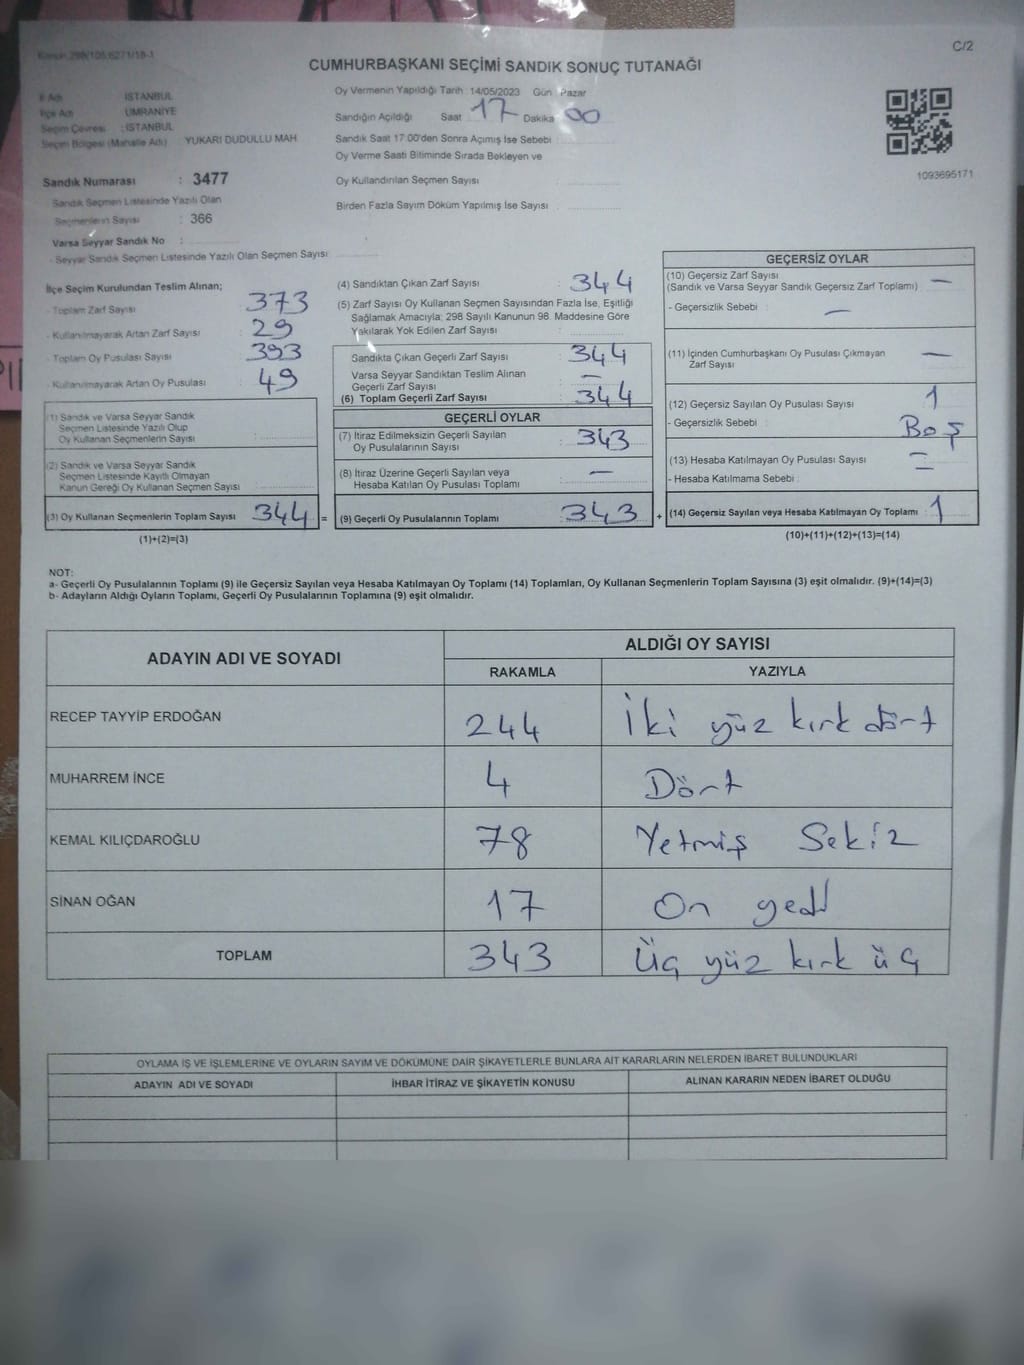 Kanun 298/105,6271/18-1
C/2
CUMHURBAŞKANI SEÇİMİ SANDIK SONUÇ TUTANAĞI
İl Adı : İSTANBUL
İlçe Adı : ÜMRANİYE
Seçim Çevresi : İSTANBUL
Seçim Bölgesi (Mahalle Adı) YUKARI DUDULLU MAH
Sandık Numarası : 3477
Sandık Seçmen Listesinde Yazılı Olan
Seçmenlerin Sayısı : 366
Varsa Seyyar Sandık No :
- Seyyar Sandık Seçmen Listesinde Yazılı Olan Seçmen Sayısı
Oy Vermenin Yapıldığı Tarih 14/05/2023 Gün Pazar
Sandığın Açıldığı Saat 17 Dakika 00
Sandık Saat 17:00'den Sonra Açılmış İse Sebebi
Oy Verme Saati Bitiminde Sırada Bekleyen ve
Oy Kullandırılan Seçmen Sayısı
Birden Fazla Sayım Döküm Yapılmış İse Sayısı
1093695171
İlçe Seçim Kurulundan Teslim Alınan;
- Toplam Zarf Sayısı : 373
- Kullanılmayarak Artan Zarf Sayısı : 29
- Toplam Oy Pusulası Sayısı : 393
- Kullanılmayarak Artan Oy Pusulası : 49
(1) Sandık ve Varsa Seyyar Sandık
Seçmen Listesinde Yazılı Olup
Oy Kullanan Seçmenlerin Sayısı
(2) Sandık ve Varsa Seyyar Sandık
Seçmen Listesinde Kayıtlı Olmayan
Kanun Gereği Oy Kullanan Seçmen Sayısı
(3) Oy Kullanan Seçmenlerin Toplam Sayısı 344 =
(1)+(2)=(3)
(4) Sandıktan Çıkan Zarf Sayısı : 344
(5) Zarf Sayısı Oy Kullanan Seçmen Sayısından Fazla İse, Eşitliği
Sağlamak Amacıyla; 298 Sayılı Kanunun 98. Maddesine Göre
Yakılarak Yok Edilen Zarf Sayısı
Sandıkta Çıkan Geçerli Zarf Sayısı : 344
Varsa Seyyar Sandıktan Teslim Alınan
Geçerli Zarf Sayısı : —
(6) Toplam Geçerli Zarf Sayısı : 344
GEÇERLİ OYLAR
(7) İtiraz Edilmeksizin Geçerli Sayılan
Oy Pusulalarının Sayısı : 343
(8) İtiraz Üzerine Geçerli Sayılan veya
Hesaba Katılan Oy Pusulası Toplamı : —
(9) Geçerli Oy Pusulalarının Toplamı : 343 +
GEÇERSİZ OYLAR
(10) Geçersiz Zarf Sayısı
(Sandık ve Varsa Seyyar Sandık Geçersiz Zarf Toplamı) : —
- Geçersizlik Sebebi : —
(11) İçinden Cumhurbaşkanı Oy Pusulası Çıkmayan
Zarf Sayısı —
(12) Geçersiz Sayılan Oy Pusulası Sayısı : 1
- Geçersizlik Sebebi : Boş
(13) Hesaba Katılmayan Oy Pusulası Sayısı : —
- Hesaba Katılmama Sebebi : —
(14) Geçersiz Sayılan veya Hesaba Katılmayan Oy Toplamı : 1
(10)+(11)+(12)+(13)=(14)
NOT:
a- Geçerli Oy Pusulalarının Toplamı (9) ile Geçersiz Sayılan veya Hesaba Katılmayan Oy Toplamı (14) Toplamları, Oy Kullanan Seçmenlerin Toplam Sayısına (3) eşit olmalıdır. (9)+(14)=(3)
b- Adayların Aldığı Oyların Toplamı, Geçerli Oy Pusulalarının Toplamına (9) eşit olmalıdır.
ADAYIN ADI VE SOYADI ALDIĞI OY SAYISI
RAKAMLA YAZIYLA
RECEP TAYYİP ERDOĞAN 244 İki yüz kırk dört
MUHARREM İNCE 4 Dört
KEMAL KILIÇDAROĞLU 78 Yetmiş Sekiz
SİNAN OĞAN 17 On yedi
TOPLAM 343 Üç yüz kırk üç
OYLAMA İŞ VE İŞLEMLERİNE VE OYLARIN SAYIM VE DÖKÜMÜNE DAİR ŞİKAYETLERLE BUNLARA AİT KARARLARIN NELERDEN İBARET BULUNDUKLARI
ADAYIN ADI VE SOYADI İHBAR İTİRAZ VE ŞİKAYETİN KONUSU ALINAN KARARIN NEDEN İBARET OLDUĞU